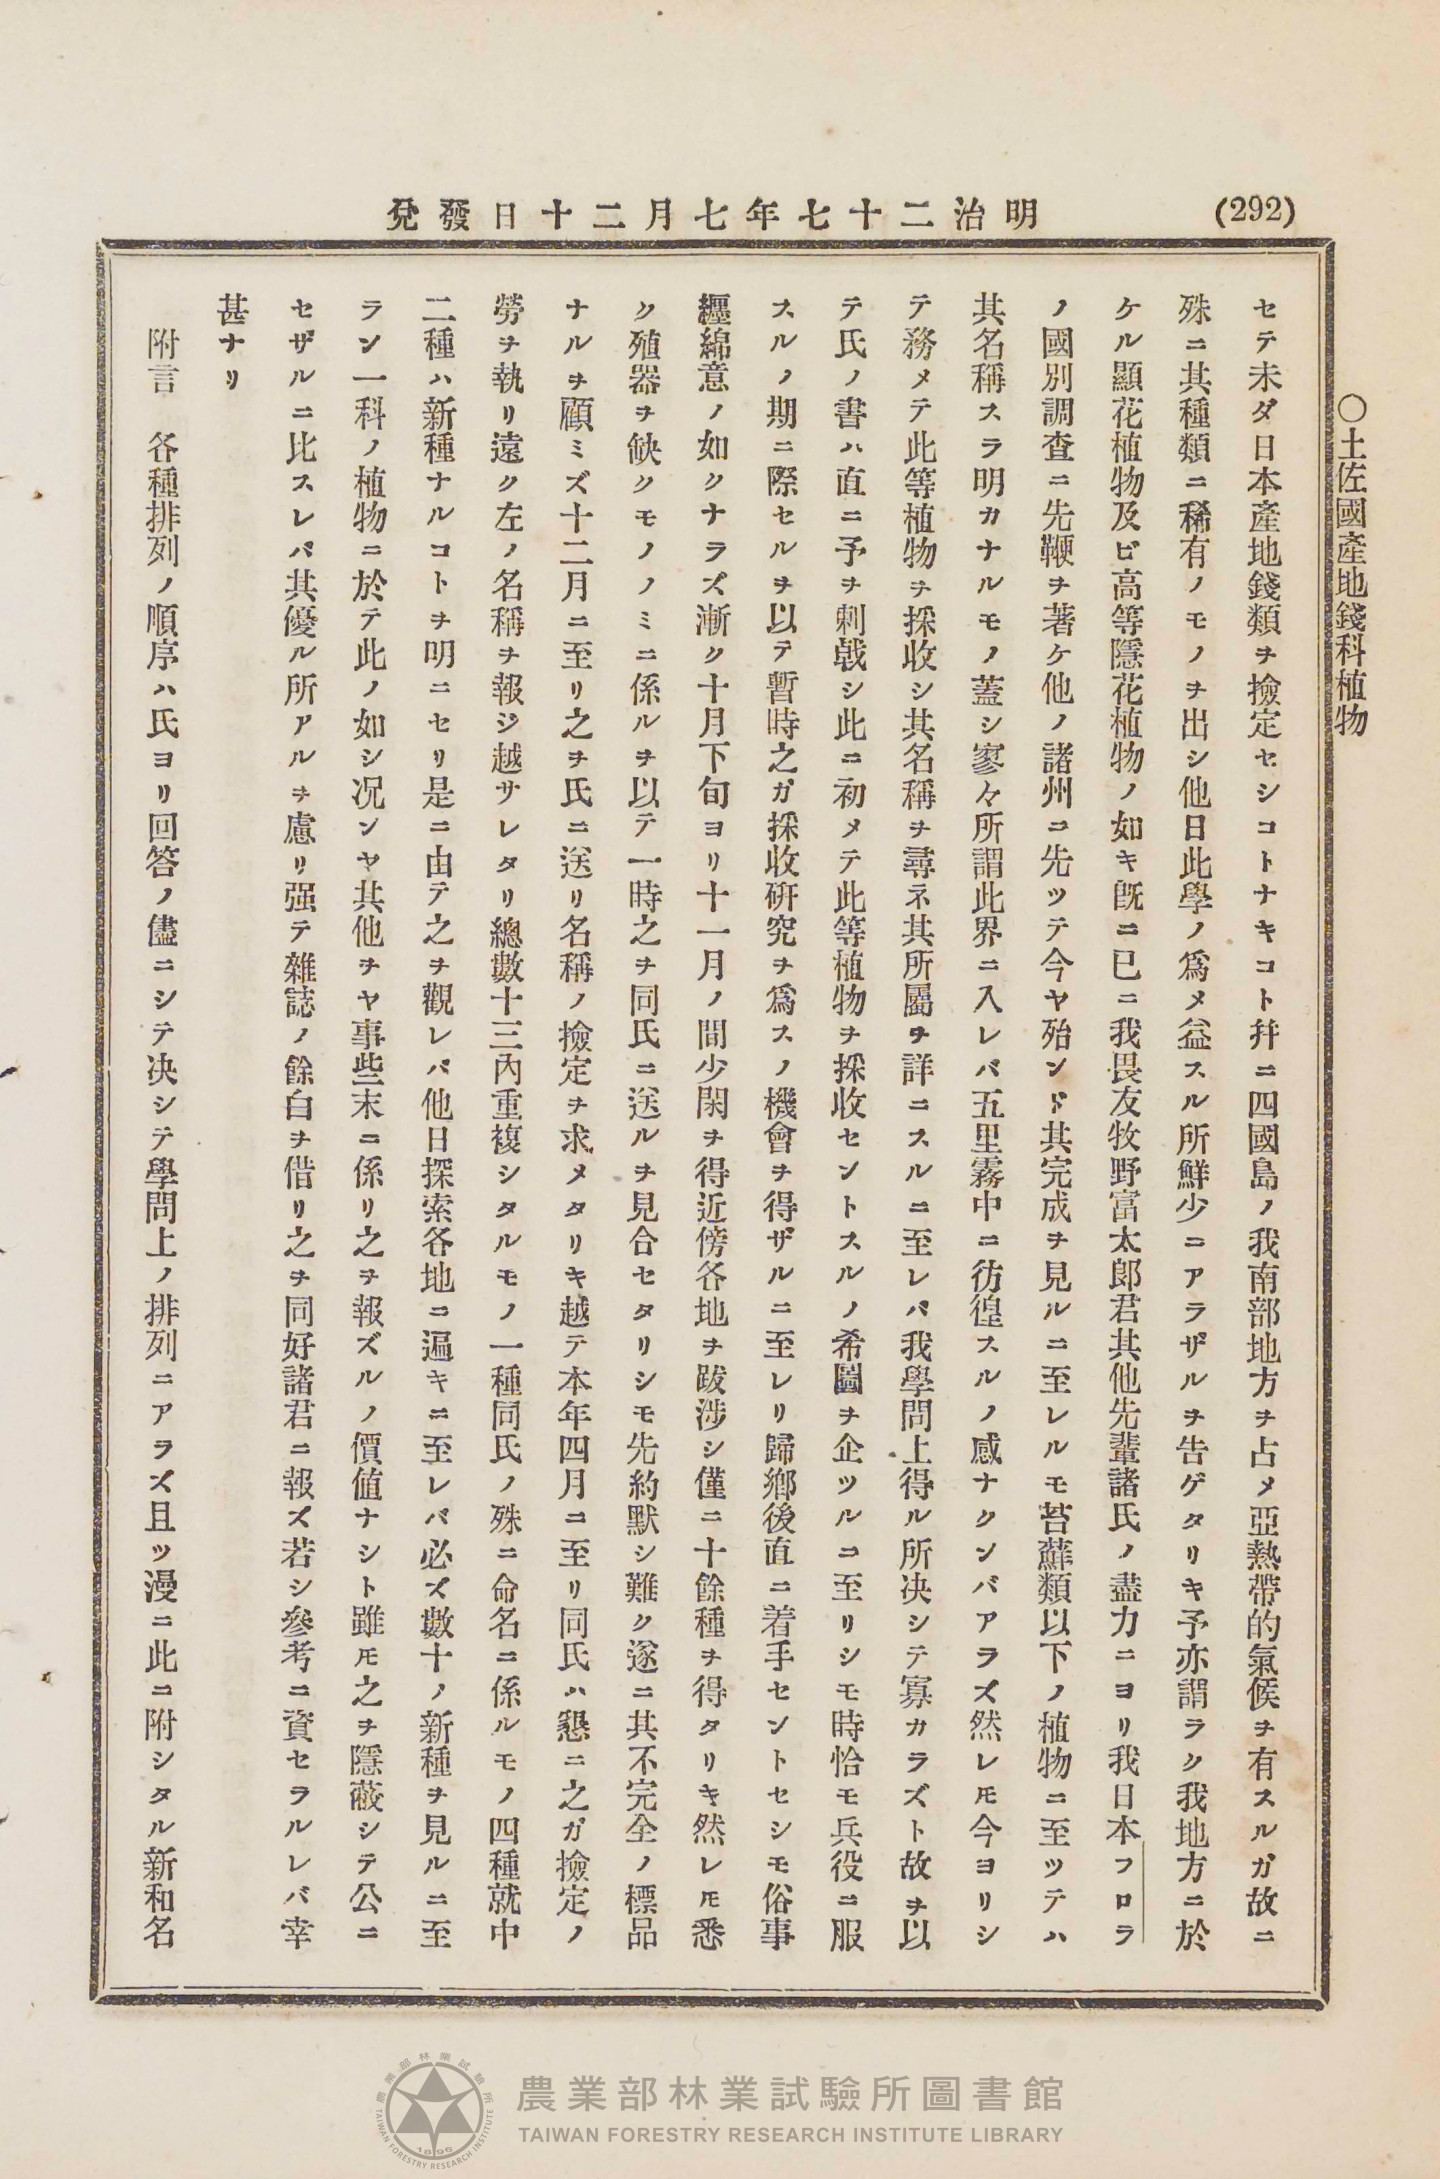 (292)
明治二十七年七月二十日發兌
〇土佐國產地錢科植物
セテ未ダ日本產地錢類ヲ撿定セシコトナキコト幷ニ四國島ノ我南部地方ヲ占メ亞熱帶的氣候ヲ有スルガ故ニ
殊ニ其種類ニ稀有ノモノヲ出シ他日此學ノ爲メ益スル所鮮少ニアラザルヲ告ゲタリキ予亦謂ラク我地方ニ於
ケル顯花植物及ビ高等隱花植物ノ如キ旣ニ已ニ我畏友牧野富太郎君其他先輩諸氏ノ盡力ニヨリ我日本フロラ
ノ國別調查ニ先鞭ヲ著ケ他ノ諸州ニ先ツテ今ヤ殆ンド其完成ヲ見ルニ至レルモ苔蘇類以下ノ植物ニ至ツテハ
其名稱スラ明カナルモノ蓋シ寥々所謂此界ニ入レバ五里霧中ニ彷徨スルノ感ナクンバアラズ然レ𪜈今ヨリシ
テ務メテ此等植物ヲ採收シ其名稱ヲ尋ネ其所屬ヲ詳ニスルニ至レバ我學問上得ル所決シテ寡カラズト故ヲ以
テ氏ノ書ハ直ニ予ヲ刺戟シ此ニ初メテ此等植物ヲ採收セントスルノ希圖ヲ企ツルニ至リシモ時恰モ兵役ニ服
スルノ期ニ際セルヲ以テ暫時之ガ採收硏究ヲ爲スノ機會ヲ得ザルニ至レリ歸鄕後直ニ着手セントセシモ俗事
纒綿意ノ如クナラズ漸ク十月下旬ヨリ十一月ノ間少閑ヲ得近傍各地ヲ跋涉シ僅ニ十餘種ヲ得タリキ然レ𪜈悉
ク殖器ヲ缺クモノノミニ係ルヲ以テ一時之ヲ同氏ニ送ルヲ見合セタリシモ先約默シ難ク遂ニ其不完全ノ標品
ナルヲ顧ミズ十二月ニ至リ之ヲ氏ニ送リ名稱ノ撿定ヲ求メタリキ越テ本年四月ニ至リ同氏ハ懇ニ之ガ撿定ノ
勞ヲ執リ遠ク左ノ名稱ヲ報ジ越サレタリ總數十三內重複シタルモノ一種同氏ノ殊ニ命名ニ係ルモノ四種就中
二種ハ新種ナルコトヲ明ニセリ是ニ由テ之ヲ觀レバ他日探索各地ニ遍キニ至レバ必ズ數十ノ新種ヲ見ルニ至
ラン一科ノ植物ニ於テ此ノ如シ况ンヤ其他ヲヤ事些末ニ係リ之ヲ報ズルノ價値ナシト雖𪜈之ヲ隱蔽シテ公ニ
セザルニ比スレバ其優ル所アルヲ慮リ强テ雜誌ノ餘白ヲ借リ之ヲ同好諸君ニ報ズ若シ參考ニ資セラルレバ幸
甚ナリ
附言　各種排列ノ順序ハ氏ヨリ回答ノ儘ニシテ決シテ學問上ノ排列ニアラズ且ツ漫ニ此ニ附シタル新和名
農業部林業試驗所圖書館
TAIWAN FORESTRY RESEARCH INSTITUTE LIBRARY
農業部林業試驗所
1896
TAIWAN FORESTRY RESEARCH INSTITUTE